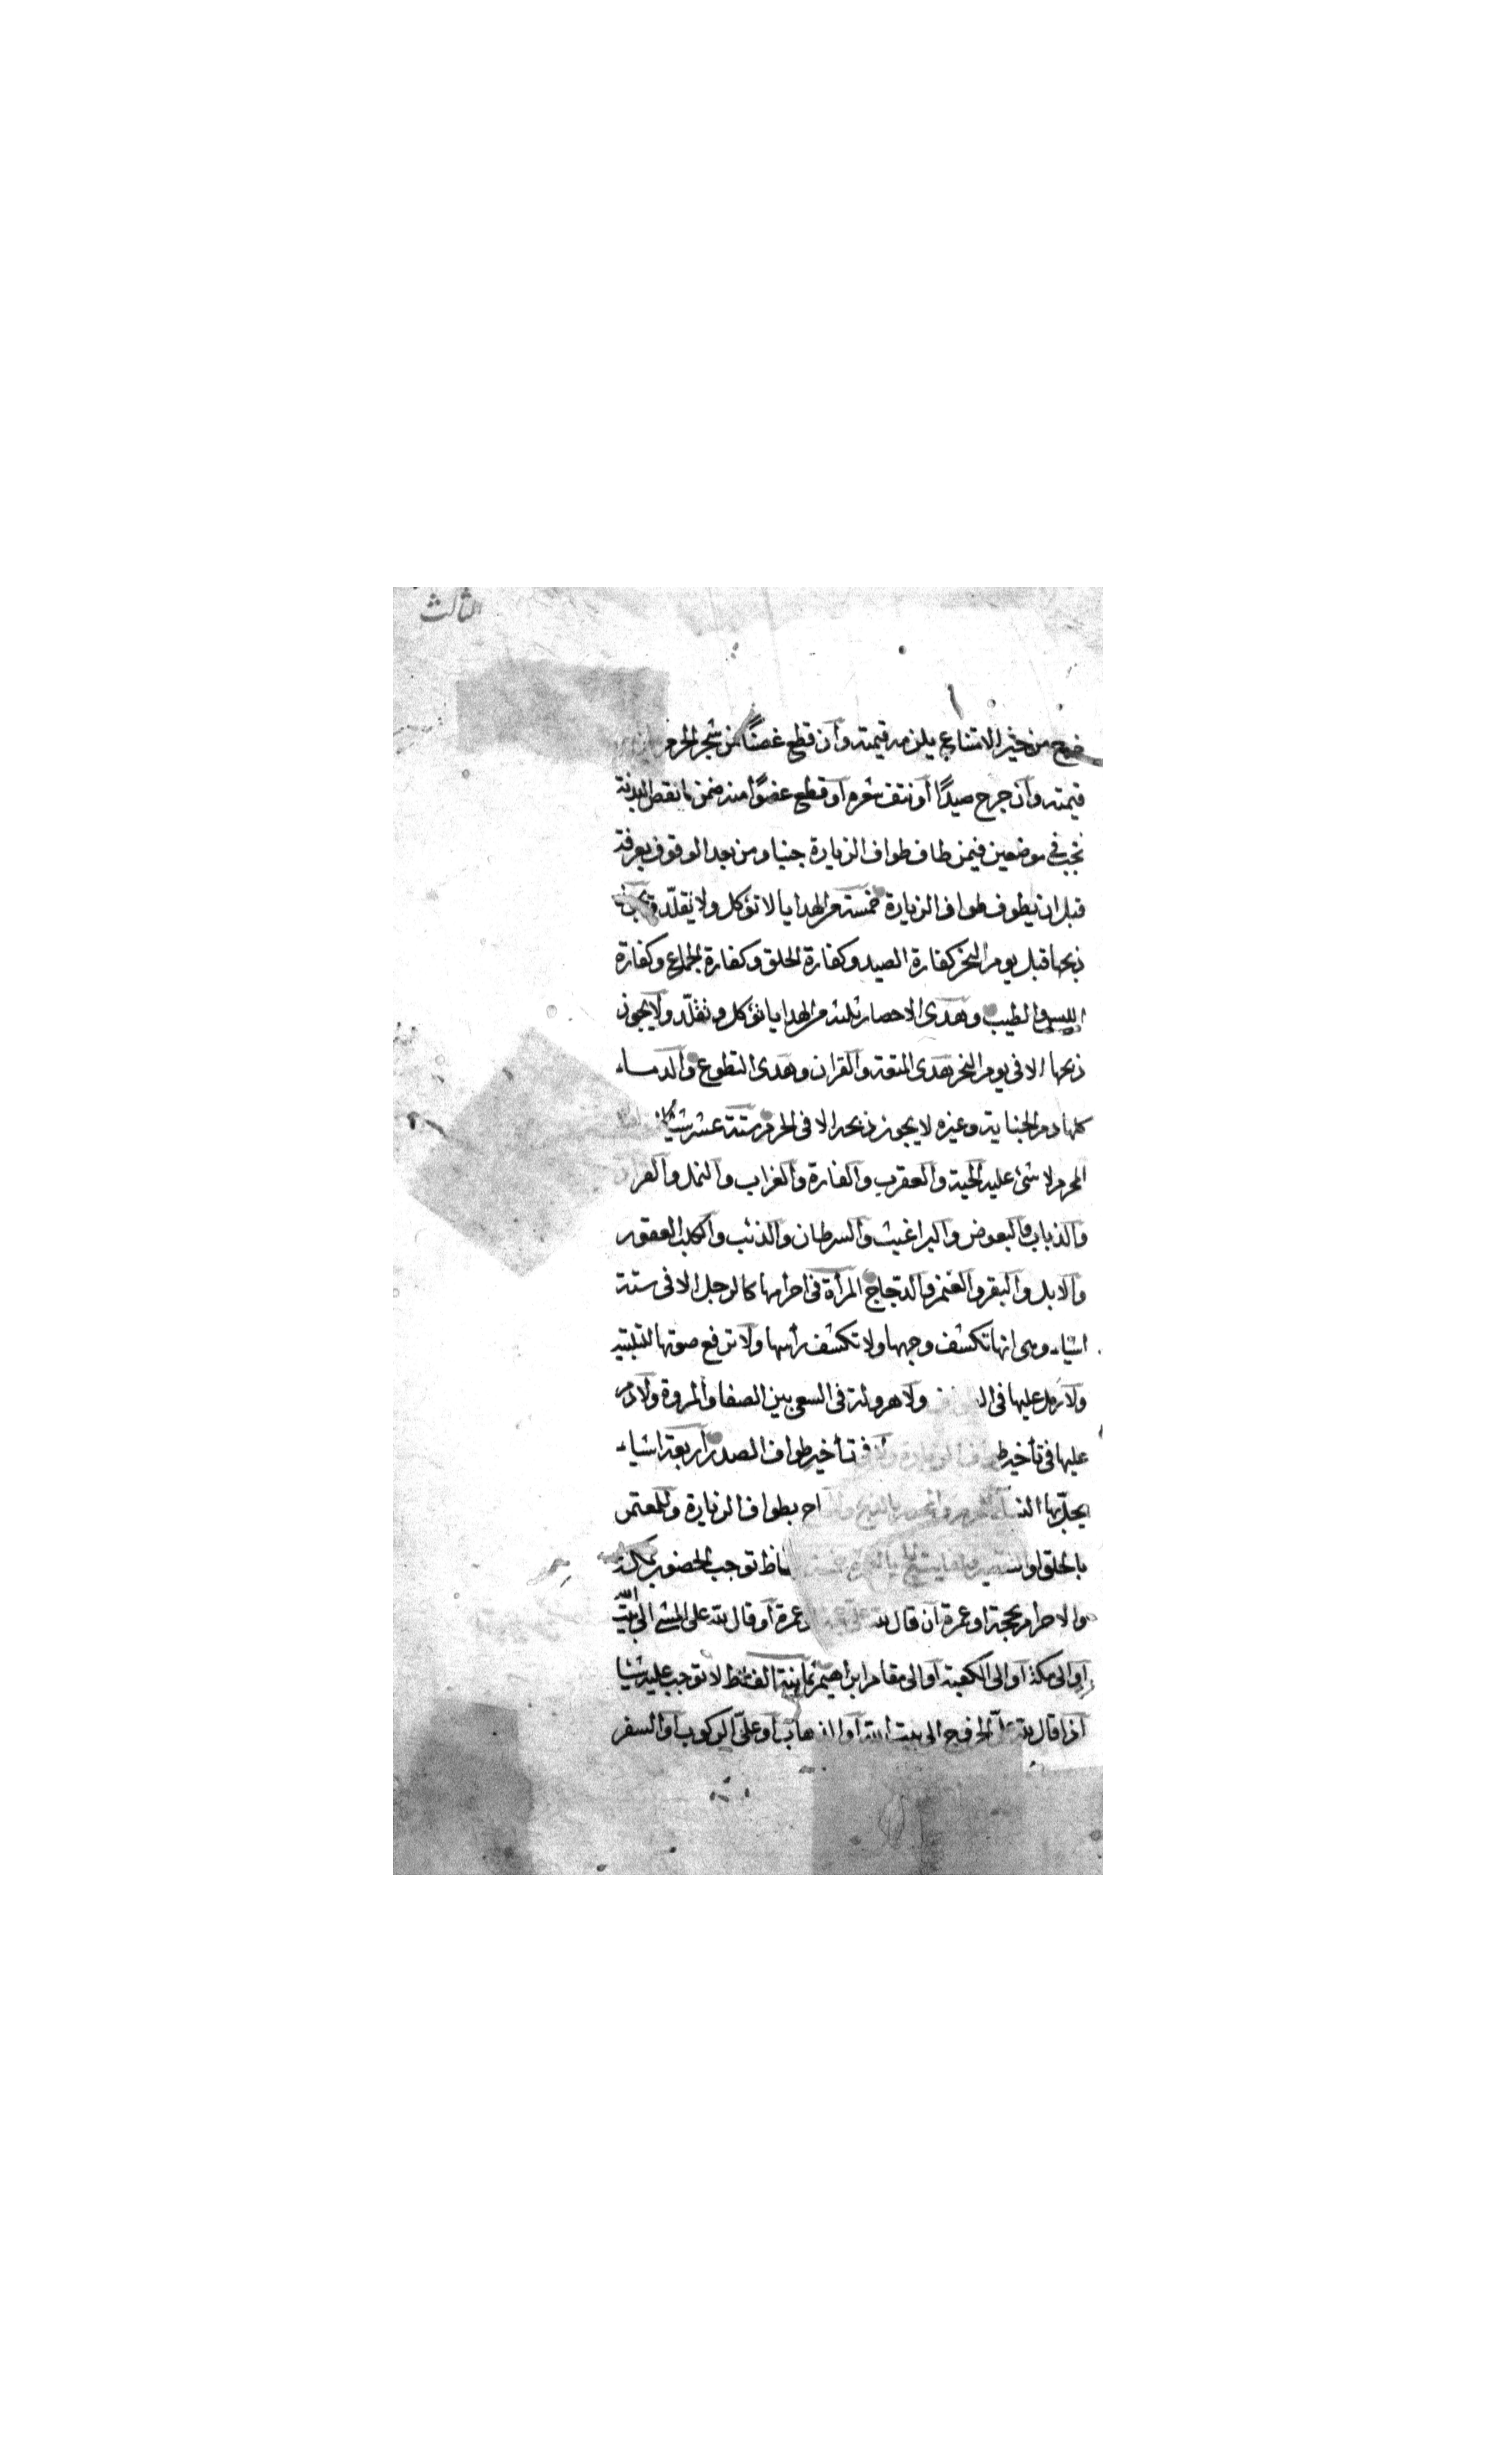 الثالث
من حيز الامتناع يلزمه قيمته وان قطع غصنًا من شجر الحرم
قيمته وان جرح صيدًا أو نتف شعره او قطع عضوًا منه ضمن ما نقص البدنة
تجب فى موضعين فيمن طاف طواف الزيارة جنبا ومن بعد الوقوف بعرفة
قبل ان يطوف طواف الزيارة خمسة من الهدايا لا تؤكل ولا يقلد
ذبحها قبل يوم النحر كفارة الصيد وكفارة الحلق وكفارة الجماع وكفارة
اللبس والطيب وهدى الاحصار ثلثة من الهدايا تؤكل وتقلّد ولا يجوز
ذبحها الا فى يوم النحر هدى المتعة والقران وهدى التطوع والدماء
كلها دم الجناية وغيره لا يجوز ذبحه الا فى الحرم ستة عشر شيئا
المحرم لا شئ عليه الحية والعقرب والفارة والغراب والنمل والقراد
والذباب والبعوض والبراغيث والسرطان والذئب والكلب العقور
والابل والبقر والغنم والدجاج المرأة فى احرامها كالرجل الا فى ستة
اشياء وهى انها تكشف وجهها ولا تكشف رأسها ولا ترفع صوتها التلبية
ولا رمل عليها فى ولا هرولة فى السعى بين الصفا والمروة ولا دم
عليها فى تأخير طواف الزيارة تأخير طواف الصدر أربعة اشياء
يحل بها بطواف الزيارة وللمعتمر
بالحلق او توجب الحضور بمكة
والاحرام بحجة او عمرة ان قال لله عمرة أو قال لله على المشى الى بيت الله
او الى مكة او الى الكعبة او الى مقام ابراهيم ثمانية الفاظ لا توجب عليه شيئا
اذا قال لله علىّ الخروج الى بيت الله او الذهاب او علىّ الركوب او السفر